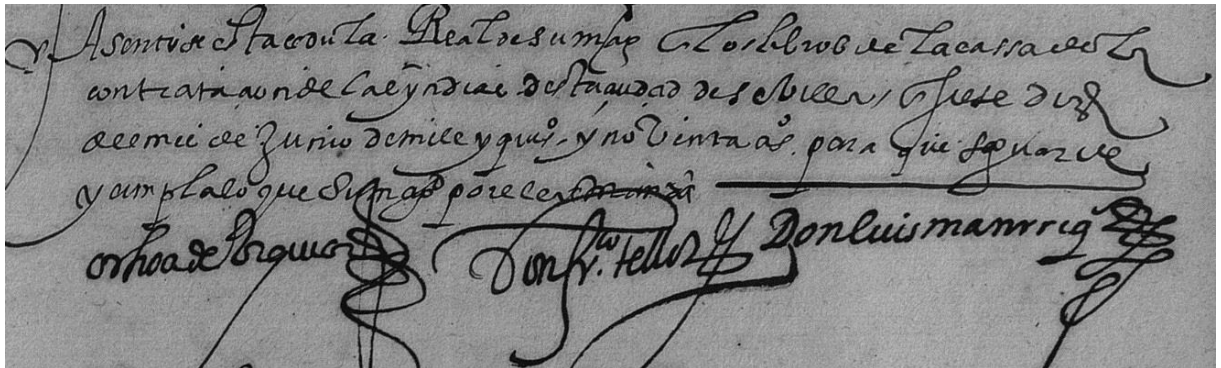 Asentose esta cedula Real de su magd en los libros de la cassa de la
contrataçion de las yndias desta ciudad de sevilla, en siete dias
del mes de Junio de mill y quis. y novinta as. para que se guarde
y cumpla lo que su magd por ella manda
ochoa de Urquiça Don frco tello Don luis manrriq